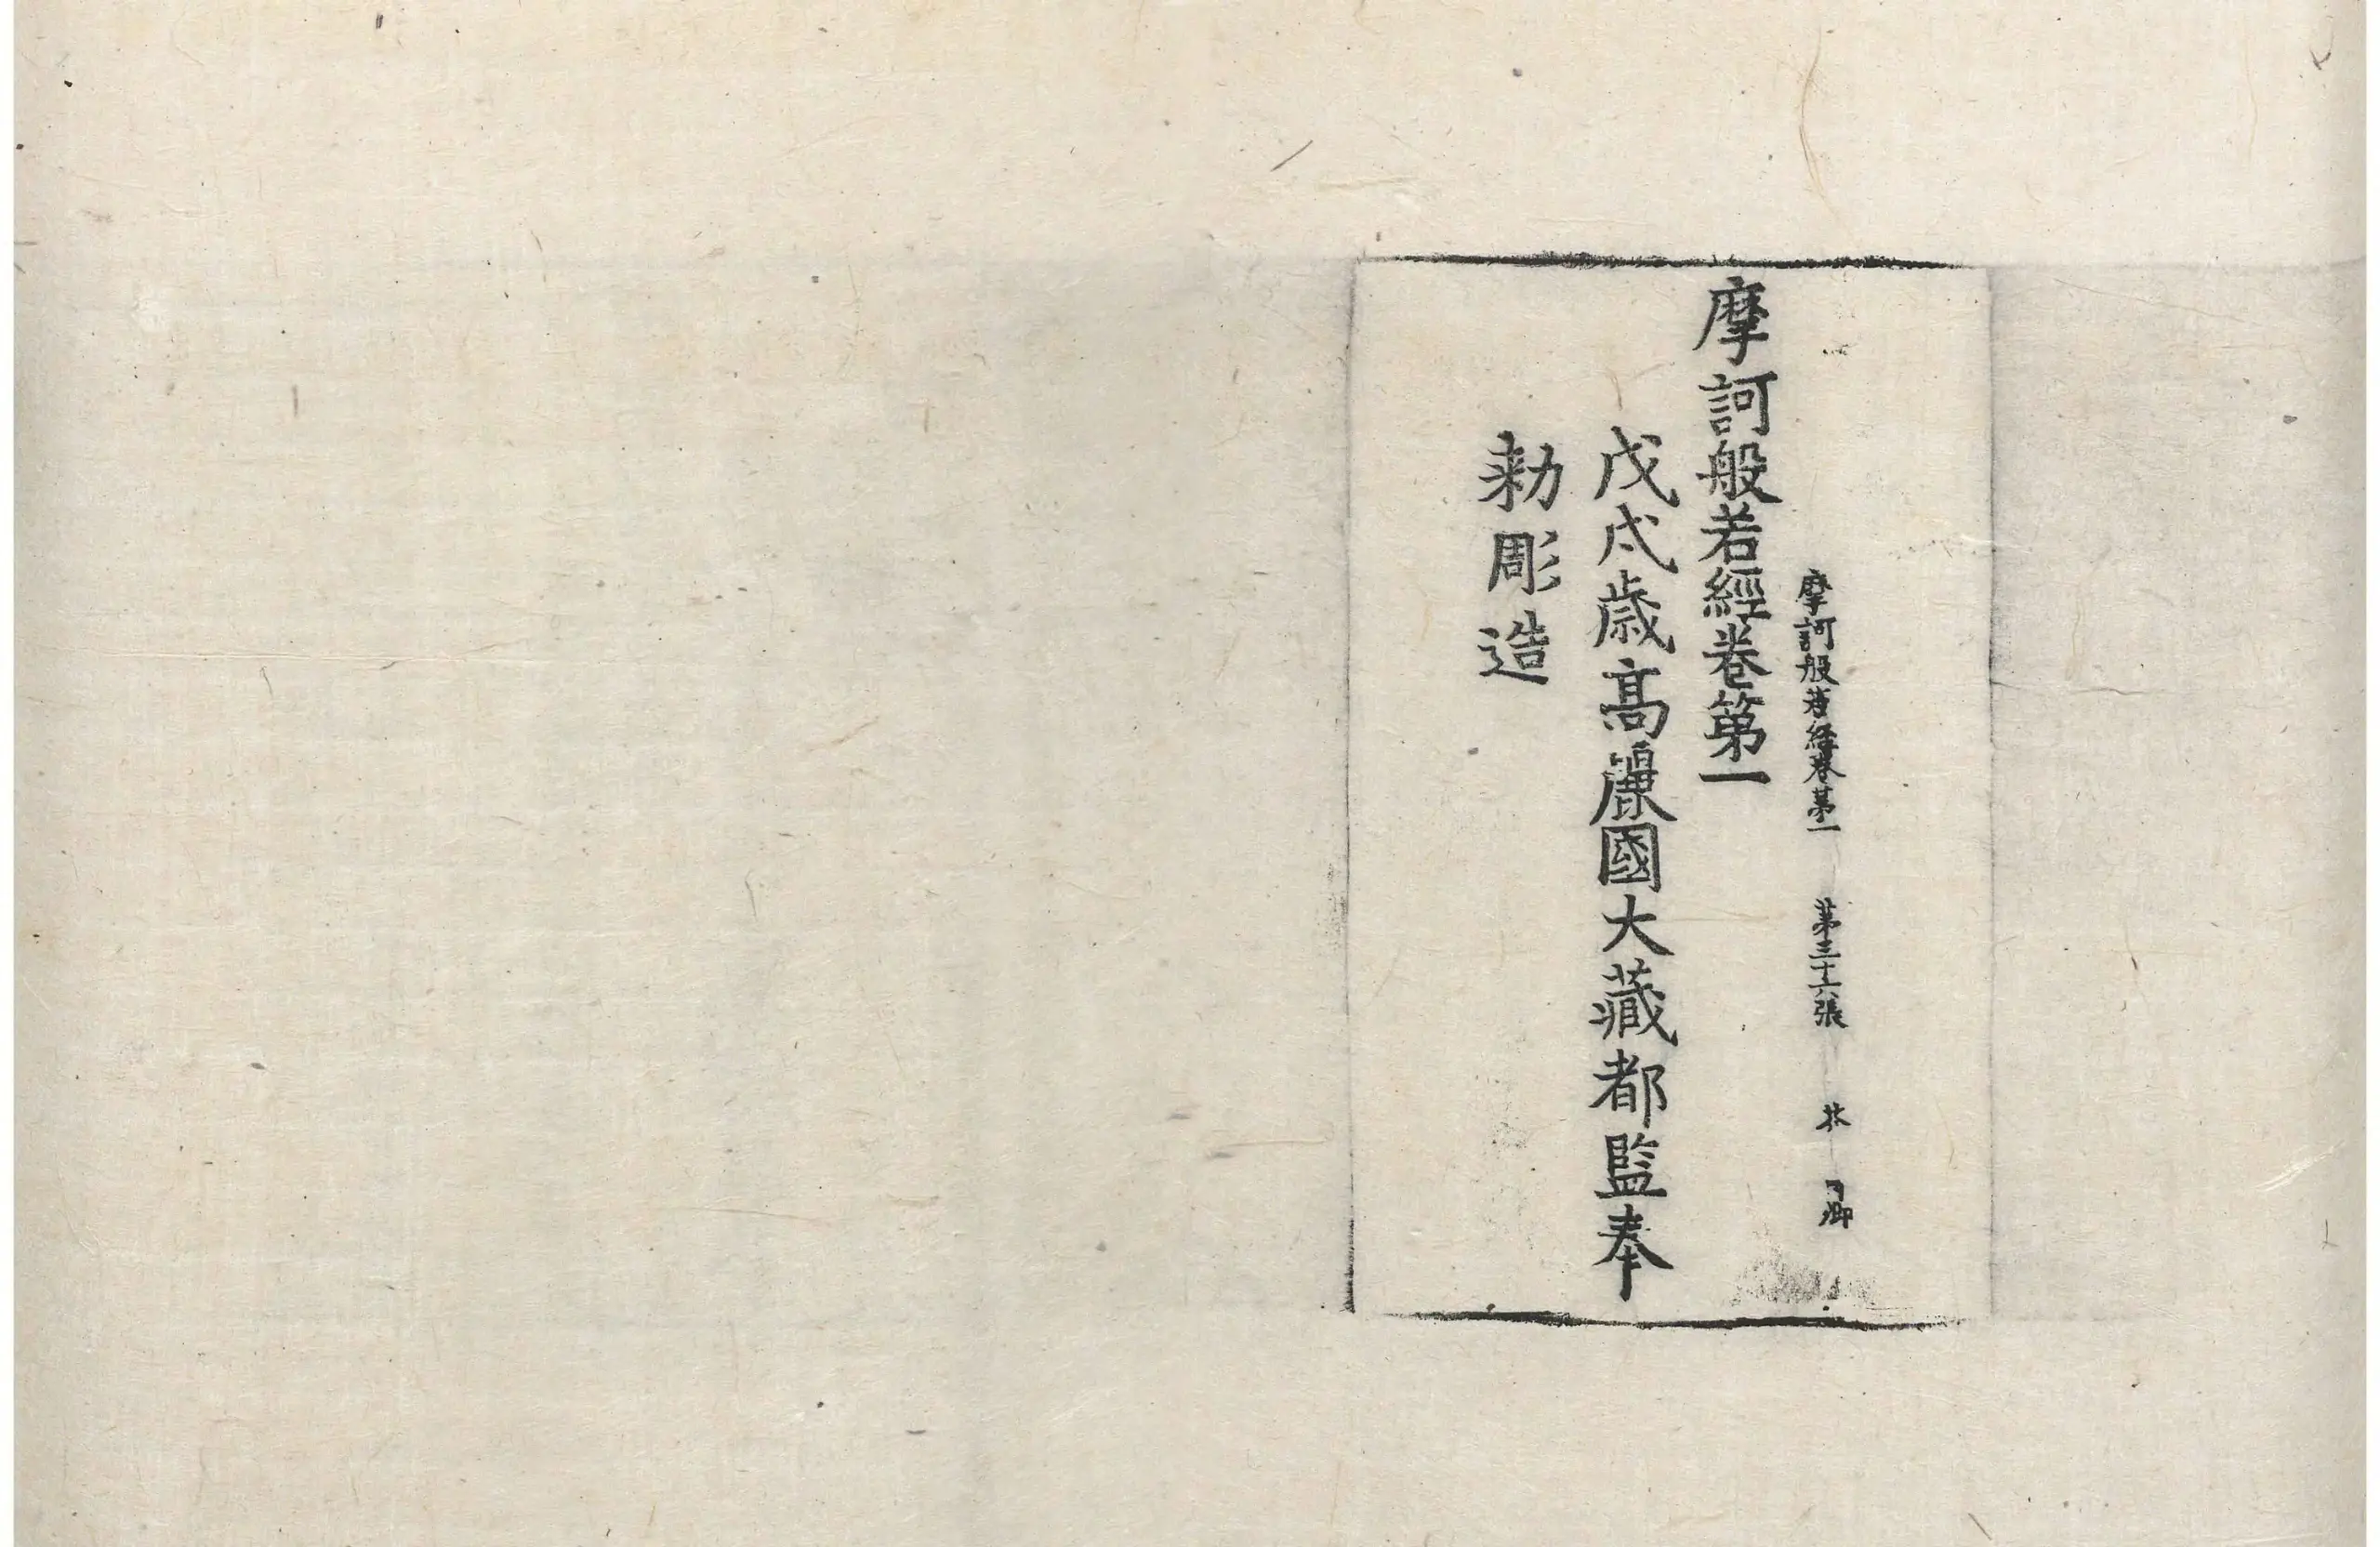 摩訶般若經卷第一 第三十六張 林
摩訶般若經卷第一
戊戌歲高麗國大藏都監奉
勑彫造